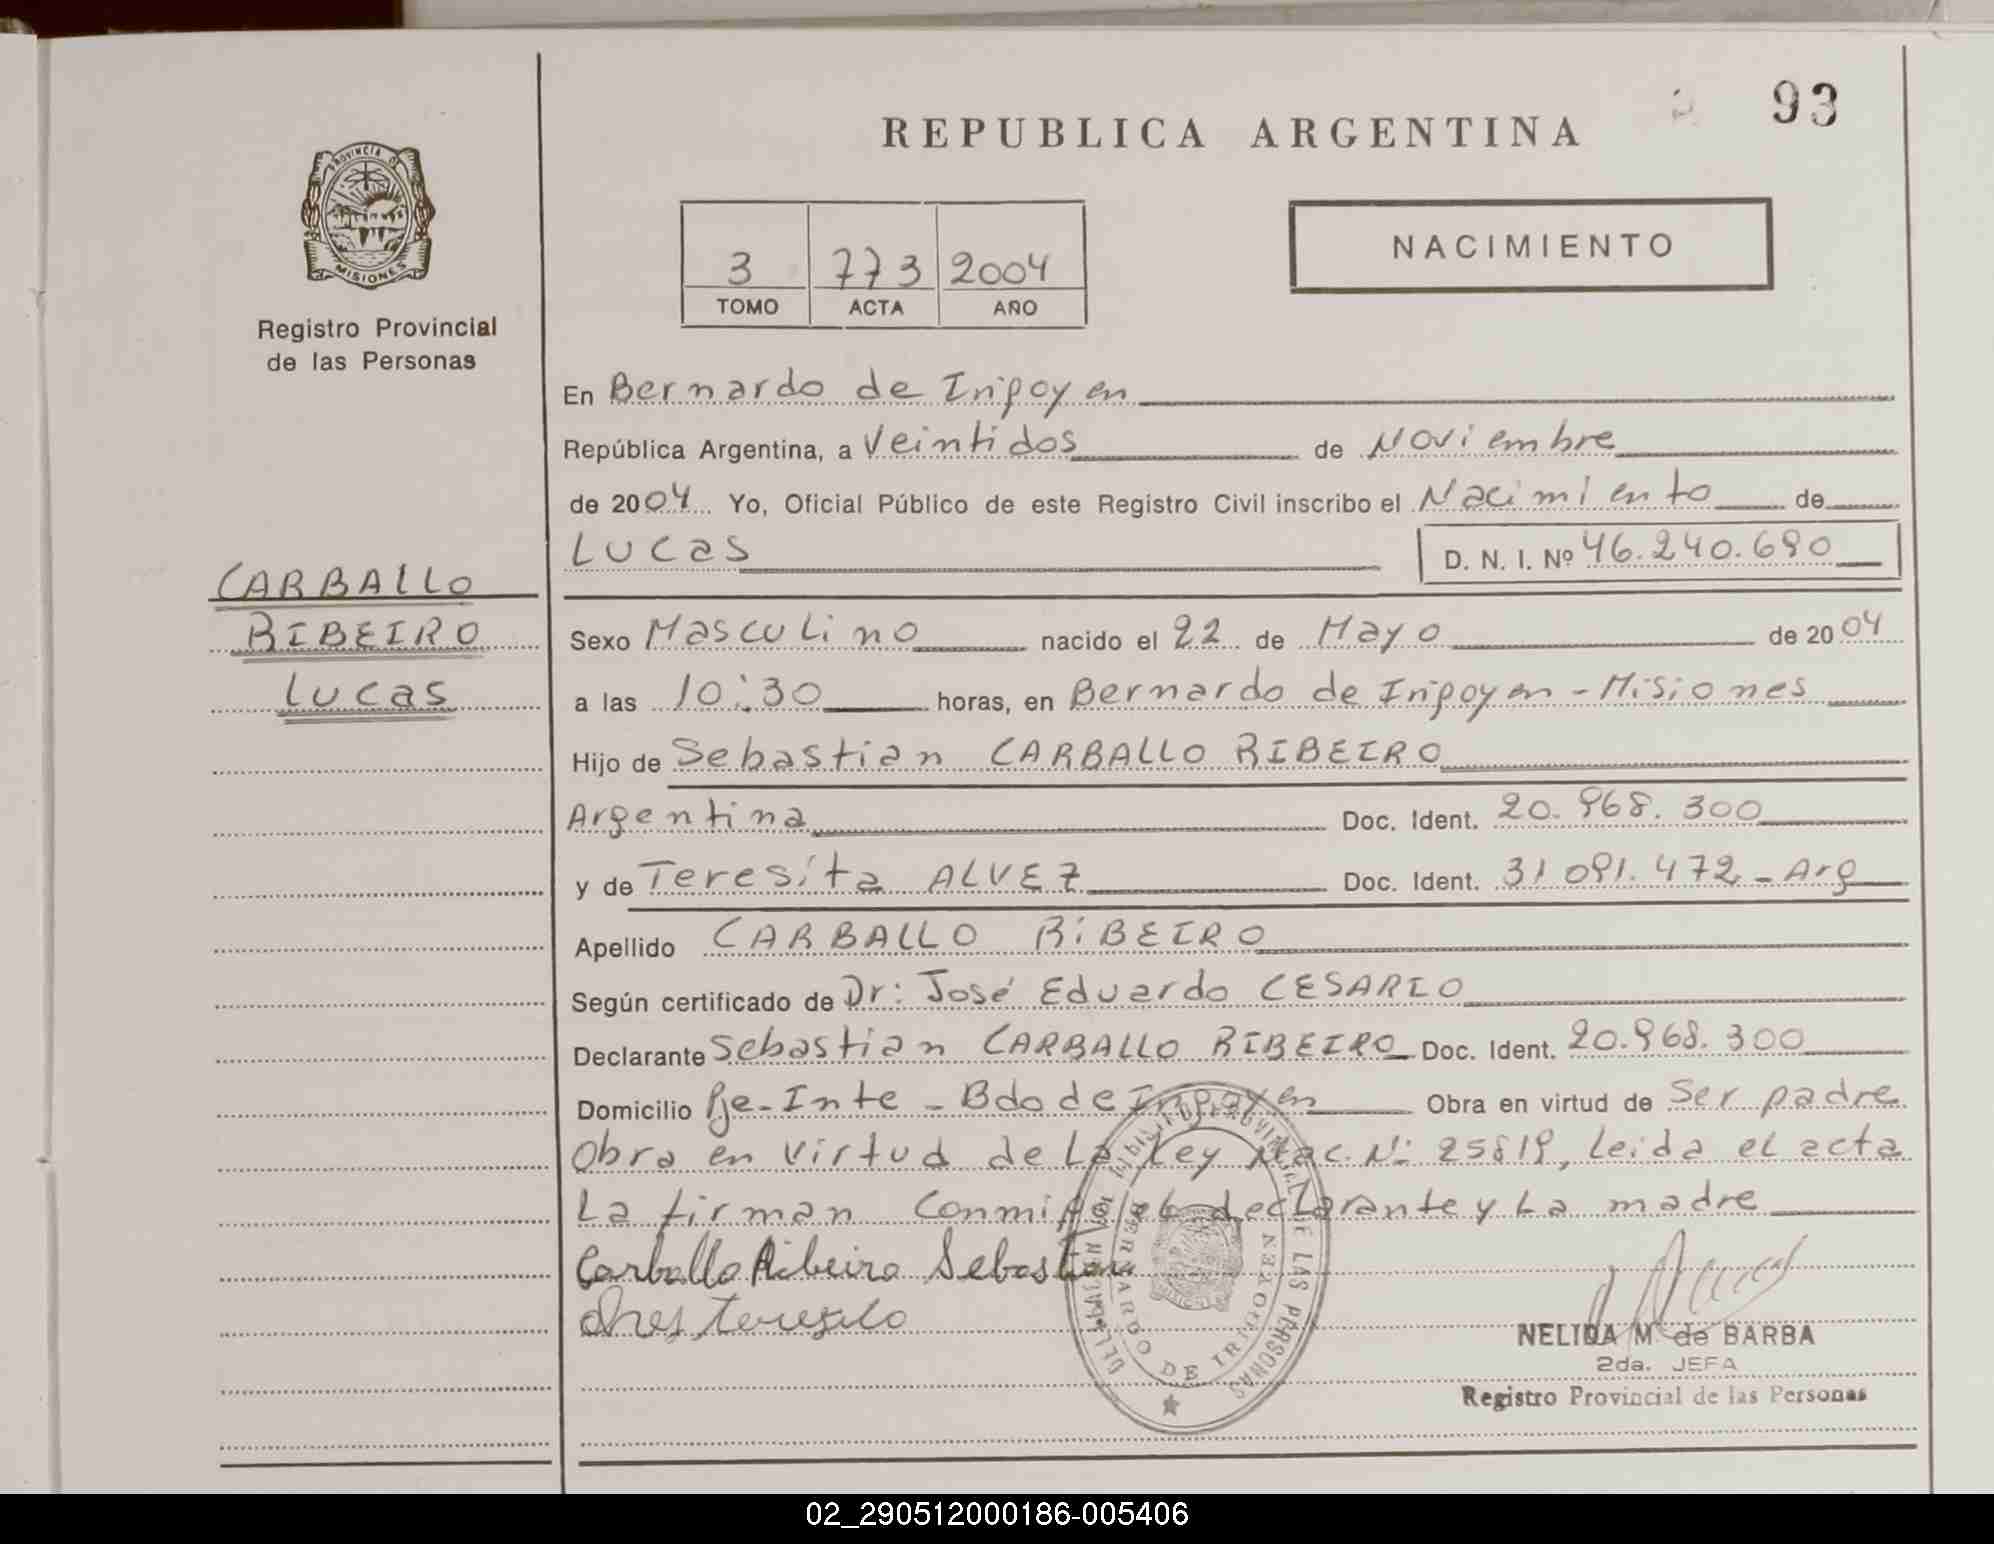 REPUBLICA ARGENTINA
93
PROVINCIA DE
MISIONES
Registro Provincial
de las Personas
3 773 2004
TOMO ACTA AÑO
NACIMIENTO
En Bernardo de Irigoyen
República Argentina, a Veintidos de Noviembre
de 2004 Yo, Oficial Público de este Registro Civil inscribo el Nacimiento de
Lucas D. N. I. Nº 46.240.690
CARBALLO
RIBEIRO
Lucas
Sexo Masculino nacido el 22 de Mayo de 2004
a las 10:30 horas, en Bernardo de Irigoyen - Misiones
Hijo de Sebastian CARBALLO RIBEIRO
Argentina Doc. Ident. 20.968.300
y de Teresita ALVEZ Doc. Ident. 31 091.472 - Arg
Apellido CARBALLO RIBEIRO
Según certificado de Dr: José Eduardo CESARIO
Declarante Sebastian CARBALLO RIBEIRO Doc. Ident. 20.968.300
Domicilio Pje-Inte - Bdo de Irigoyen Obra en virtud de Ser padre
Obra en virtud de La Ley Nac. Nº 25819, Leida el acta
La firman Conmigo declarante y La madre
Carballo Ribeiro Sebastian
BERNARDO DE IRIGOYEN
DE LAS PERSONAS
NELIDA M. de BARBA
2da. JEFA
Registro Provincial de las Personas
02_290512000186-005406